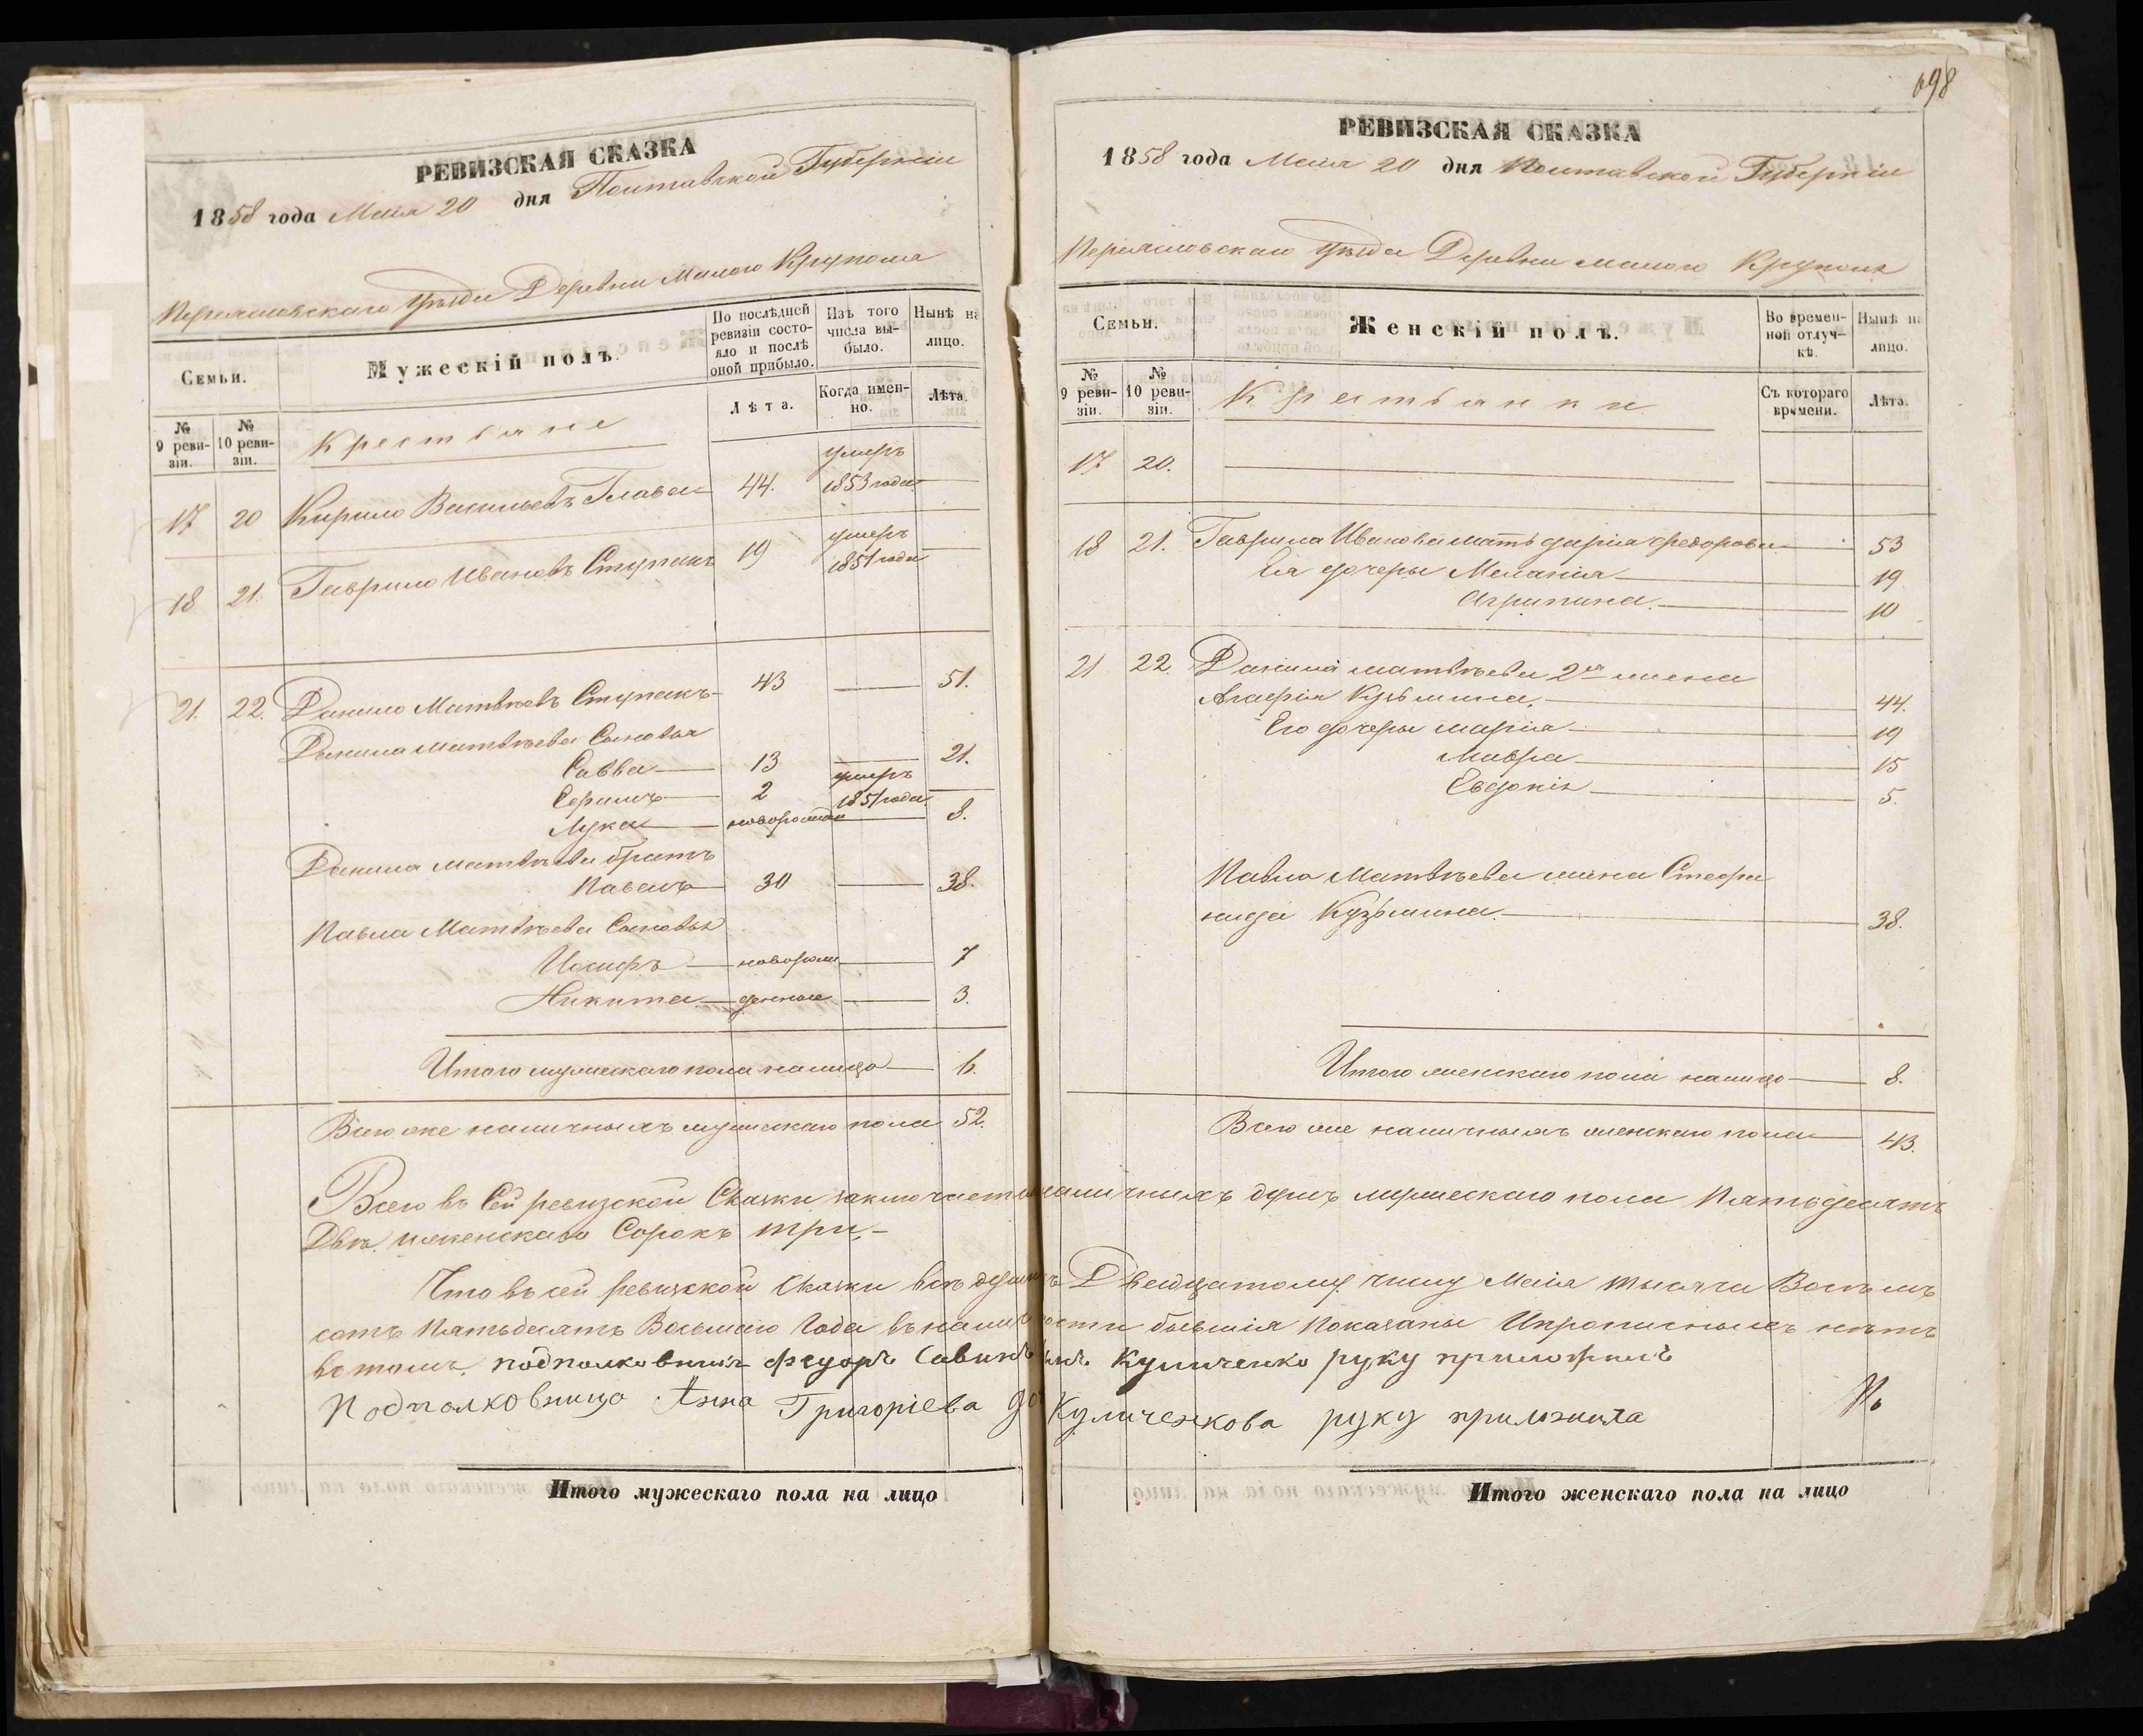 РЕВИЗСКАЯ СКАЗКА
1858 года Маія 20 дня Полтавской Губерніи
Переяславскаго Уѣзда Деревни Малого Крупола
Семьи.
Мужескій полъ.
По послѣдней ревизіи состояло и послѣ оной прибыло.
Изъ того числа выбыло.
Нынѣ на лицо.
№ 9 ревизіи.
№ 10 ревизіи.
Крестьяне
Лѣта.
Когда именно.
Лѣта
17 20 Кирило Васильевъ Глава 44. умеръ 1853 года
18 21. Гаврило Ивановъ Ступакъ 19 умеръ 1851 года
21. 22. Данило Матвѣевъ Ступакъ 43 51.
Данила Матвѣева Сыновья
Савва 13 21.
Ефимъ 2 умеръ 1851 года.
Лука новорожден 8.
Данила Матвѣева братъ
Павелъ 30 38.
Павла Матвѣева Сыновья
Иосифъ новорож 7
Никита денные 3.
Итого мужескаго пола налицо 6.
Всего же наличныхъ мужескаго пола 52.
698
РЕВИЗСКАЯ СКАЗКА
1858 года Маія 20 дня Полтавской Губерніи
Переяславскаго Уѣзда Деревни Малого Крупола
Семьи.
Женскій полъ.
Во временной отлучкѣ.
Нынѣ на лицо.
№ 9 ревизіи.
№ 10 ревизіи.
Крестьянки
Съ котораго времени.
Лѣта.
17 20.
18 21. Гаврила Иванова мать Дарія Федорова 53
Ея дочеры Меланія 19
Агрипина. 10
21 22. Данила Матвѣева 2я жена
Агафія Кузьмина. 44.
Его дочеры Марія 19
Мавра 15
Евдокія 5.
Павла Матвѣева жена Стефа
нида Кузьмина. 38.
Итого женскаго пола налицо 8.
Всего же наличныхъ женскаго пола 43.
Всего въ Сей ревизской Сказки заключается наличныхъ душъ мужескаго пола Пятьдесятъ
Двѣ. женскаго Сорокъ три,
Что въ сей ревизской Сказки всѣ души къ Двадцатому числу Маія тысяча Восѣмъ
сотъ Пятьдесятъ Восьмаго Года въ наличности бывшія Показаны И прописныхъ нѣтъ
въ томъ. подполковникъ Федоръ Савинъ сынъ Куличенко руку приложилъ
Подполковница Анна Григоріева до Куличенкова руку приложила
Итого мужескаго пола на лицо
Итого женскаго пола на лицо